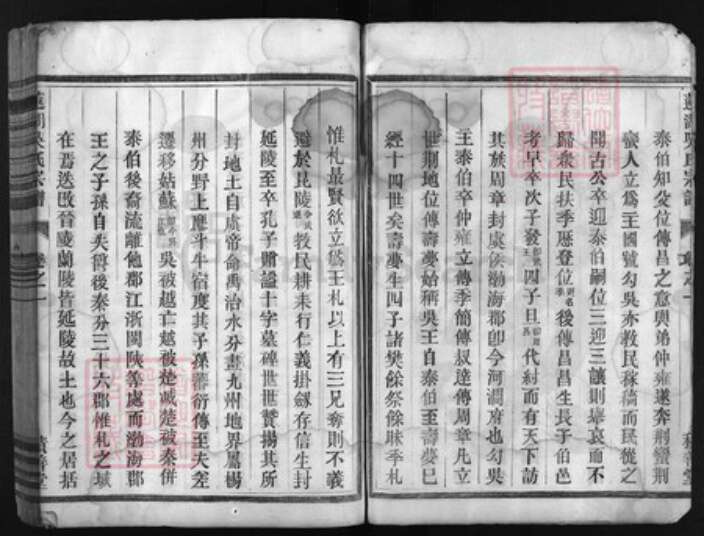 泰伯知父位傳昌之意與弟仲雍遂奔荆蠻荆
蠻人立爲王國號勾吳亦教民稼穡而民從之
聞古公卒迎泰伯嗣位三迎三讓則舉哀而不
歸衆民扶季歷登位後傳昌昌生長子伯邑
考早卒次子發四子旦代紂而有天下訪
其族周章封處侯渤海郡卽今河澗府也勾吳
王泰伯卒仲雍立傳季簡傳叔達傳周章凡立
世期地位傳壽夢始稱吳王自泰伯至壽夢巳
經十四世矣壽夢生四子諸樊餘祭餘昧季札
積善堂
蓮湖吳氏宗譜
卷之一
惟札最賢欲立爲王札以上有三兄奪則不義
避於延陵教民耕耒行仁義掛劍存信生封
延陵至卒孔子贈謚十字墓碑世世贊揚其所
封地土自虞帝命禹治水分畫九州地界屬楊
州分野上應斗牛宿度其子孫蕃衍傳至夫差
遷移姑蘇吳被越亡越被楚滅楚被秦併
泰伯後裔流離他郡江浙閩陝等處而渤海郡
王之子孫自失爵後秦分三十六郡惟札之城
在焉迭改晉陵蘭陵皆延陵故土也今之居括
積善堂